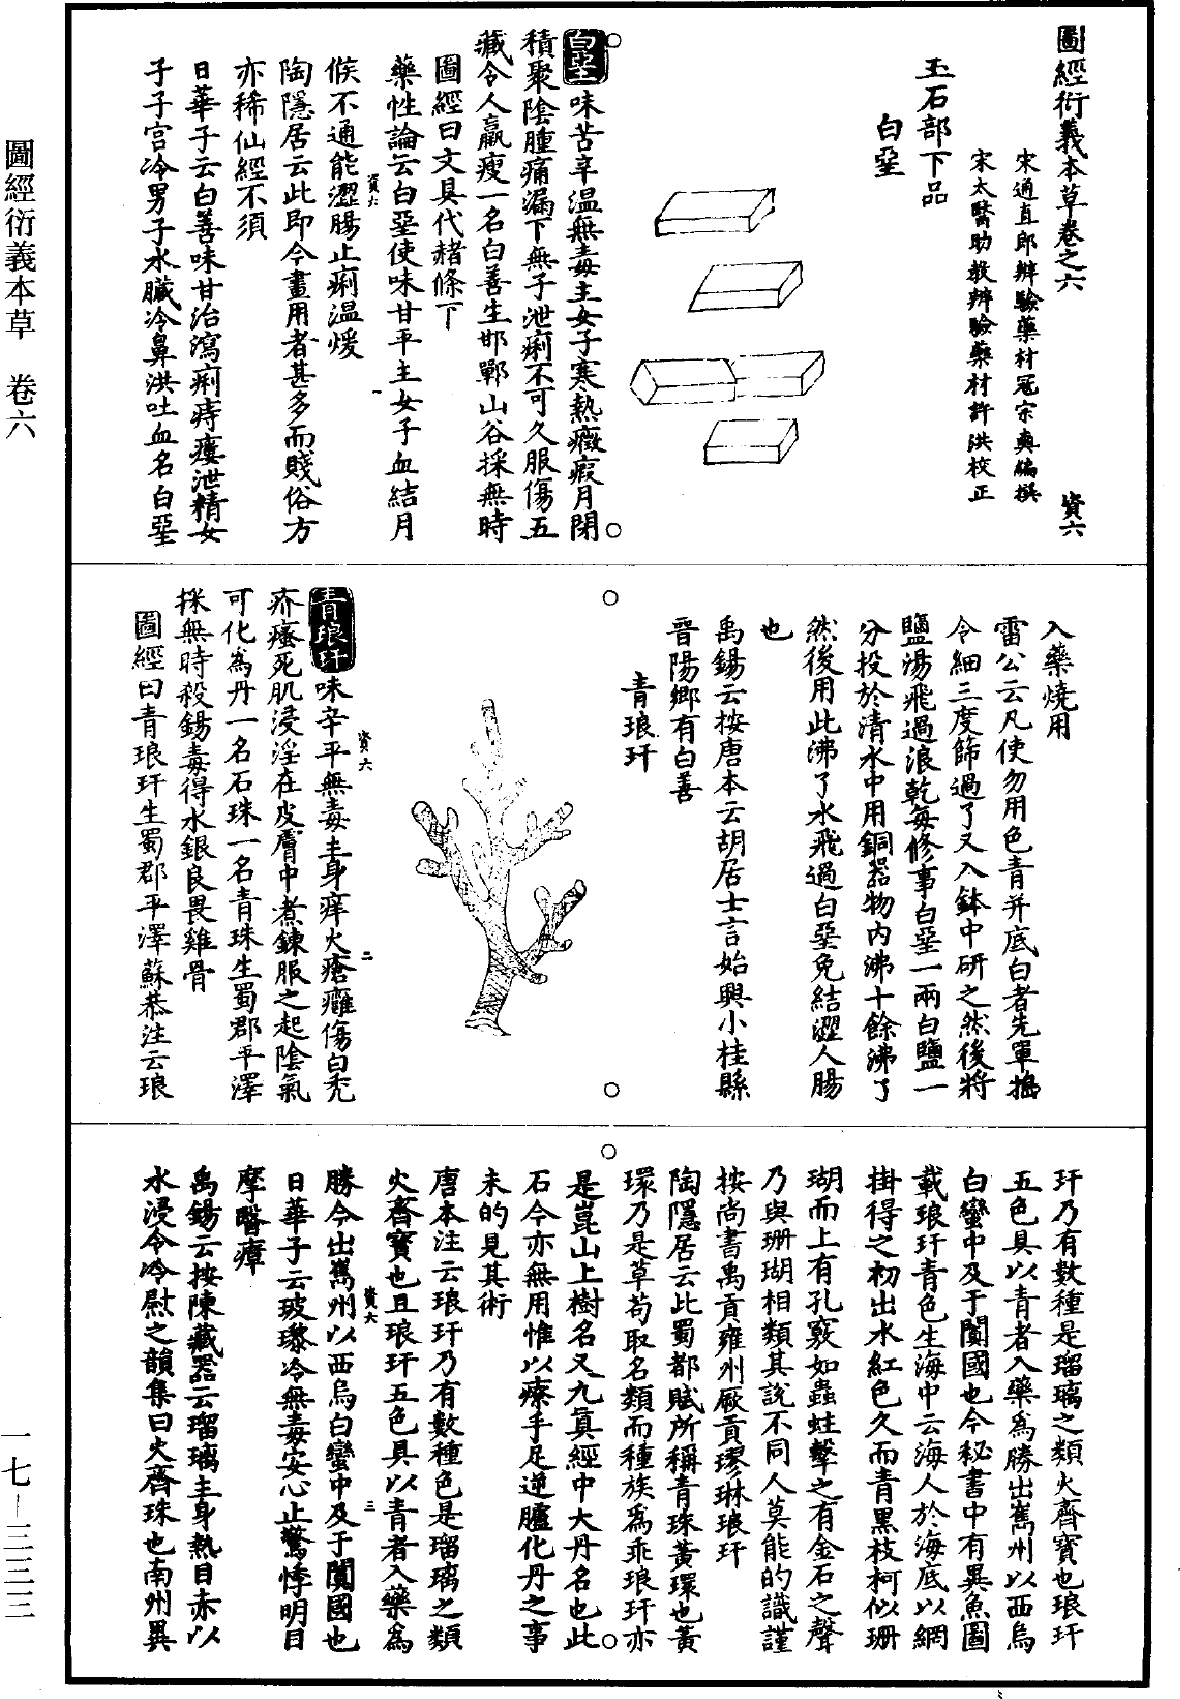 圖經衍義本草卷之六　資六
宋通直郎辨驗藥材寇宗奭編撰
宋太醫助教辨驗藥材許洪校正
玉石部下品
白堊
白堊味苦辛溫無毒主女子寒熱癥瘕月閉
積聚陰腫痛漏下無子泄痢不可久服傷五
藏令人羸瘦一名白善生邯鄲山谷採無時
圖經曰文具代赭條下
藥性論云白堊使味甘平主女子血結月
候不通能澀腸止痢溫煖
陶隱居云此即今畫用者甚多而賤俗方
亦稀仙經不須
日華子云白善味甘治瀉痢痔瘻泄精女
子子宮冷男子水臟冷鼻洪吐血名白堊
資六
一
入藥燒用
雷公云凡使勿用色青并底白者先單搗
令細三度篩過了又入鉢中研之然後將
鹽湯飛過浪乾每修事白堊一兩白鹽一
分投於清水中用銅器物內沸十餘沸了
然後用此沸了水飛過白堊免結澀人腸
也
禹錫云按唐本云胡居士言始興小桂縣
晉陽鄉有白善
青琅玕
青琅玕味辛平無毒主身痒火瘡癰傷白禿
疥瘙死肌浸淫在皮膚中煮鍊服之起陰氣
可化為丹一名石珠一名青珠生蜀郡平澤
採無時殺錫毒得水銀良畏雞骨
圖經曰青琅玕生蜀郡平澤蘇恭注云琅
資六
二
玕乃有數種是瑠璃之類火齊寶也琅玕
五色具以青者入藥為勝出嶲州以西烏
白蠻中及于闐國也今秘書中有異魚圖
載琅玕青色生海中云海人於海底以網
掛得之初出水紅色久而青黑枝柯似珊
瑚而上有孔竅如蟲蛀擊之有金石之聲
乃與珊瑚相類其說不同人莫能的識謹
按尚書禹貢雍州厥貢璆琳琅玕
陶隱居云此蜀都賦所稱青珠黃環也黃
環乃是草苟取名類而種族為乖琅玕亦
是崑山上樹名又九真經中大丹名也此
石今亦無用惟以療手足逆臚化丹之事
未的見其術
唐本注云琅玕乃有數種色是瑠璃之類
火齊寶也且琅玕五色具以青者入藥為
勝今出嶲州以西烏白蠻中及于闐國也
日華子云玻瓈冷無毒安心止驚悸明目
摩瞖瘴
禹錫云按陳藏器云瑠璃主身熱目赤以
水浸令冷慰之韻集曰火齊珠也南州異
資六
三
圖經衍義本草　卷六
一七—三三三